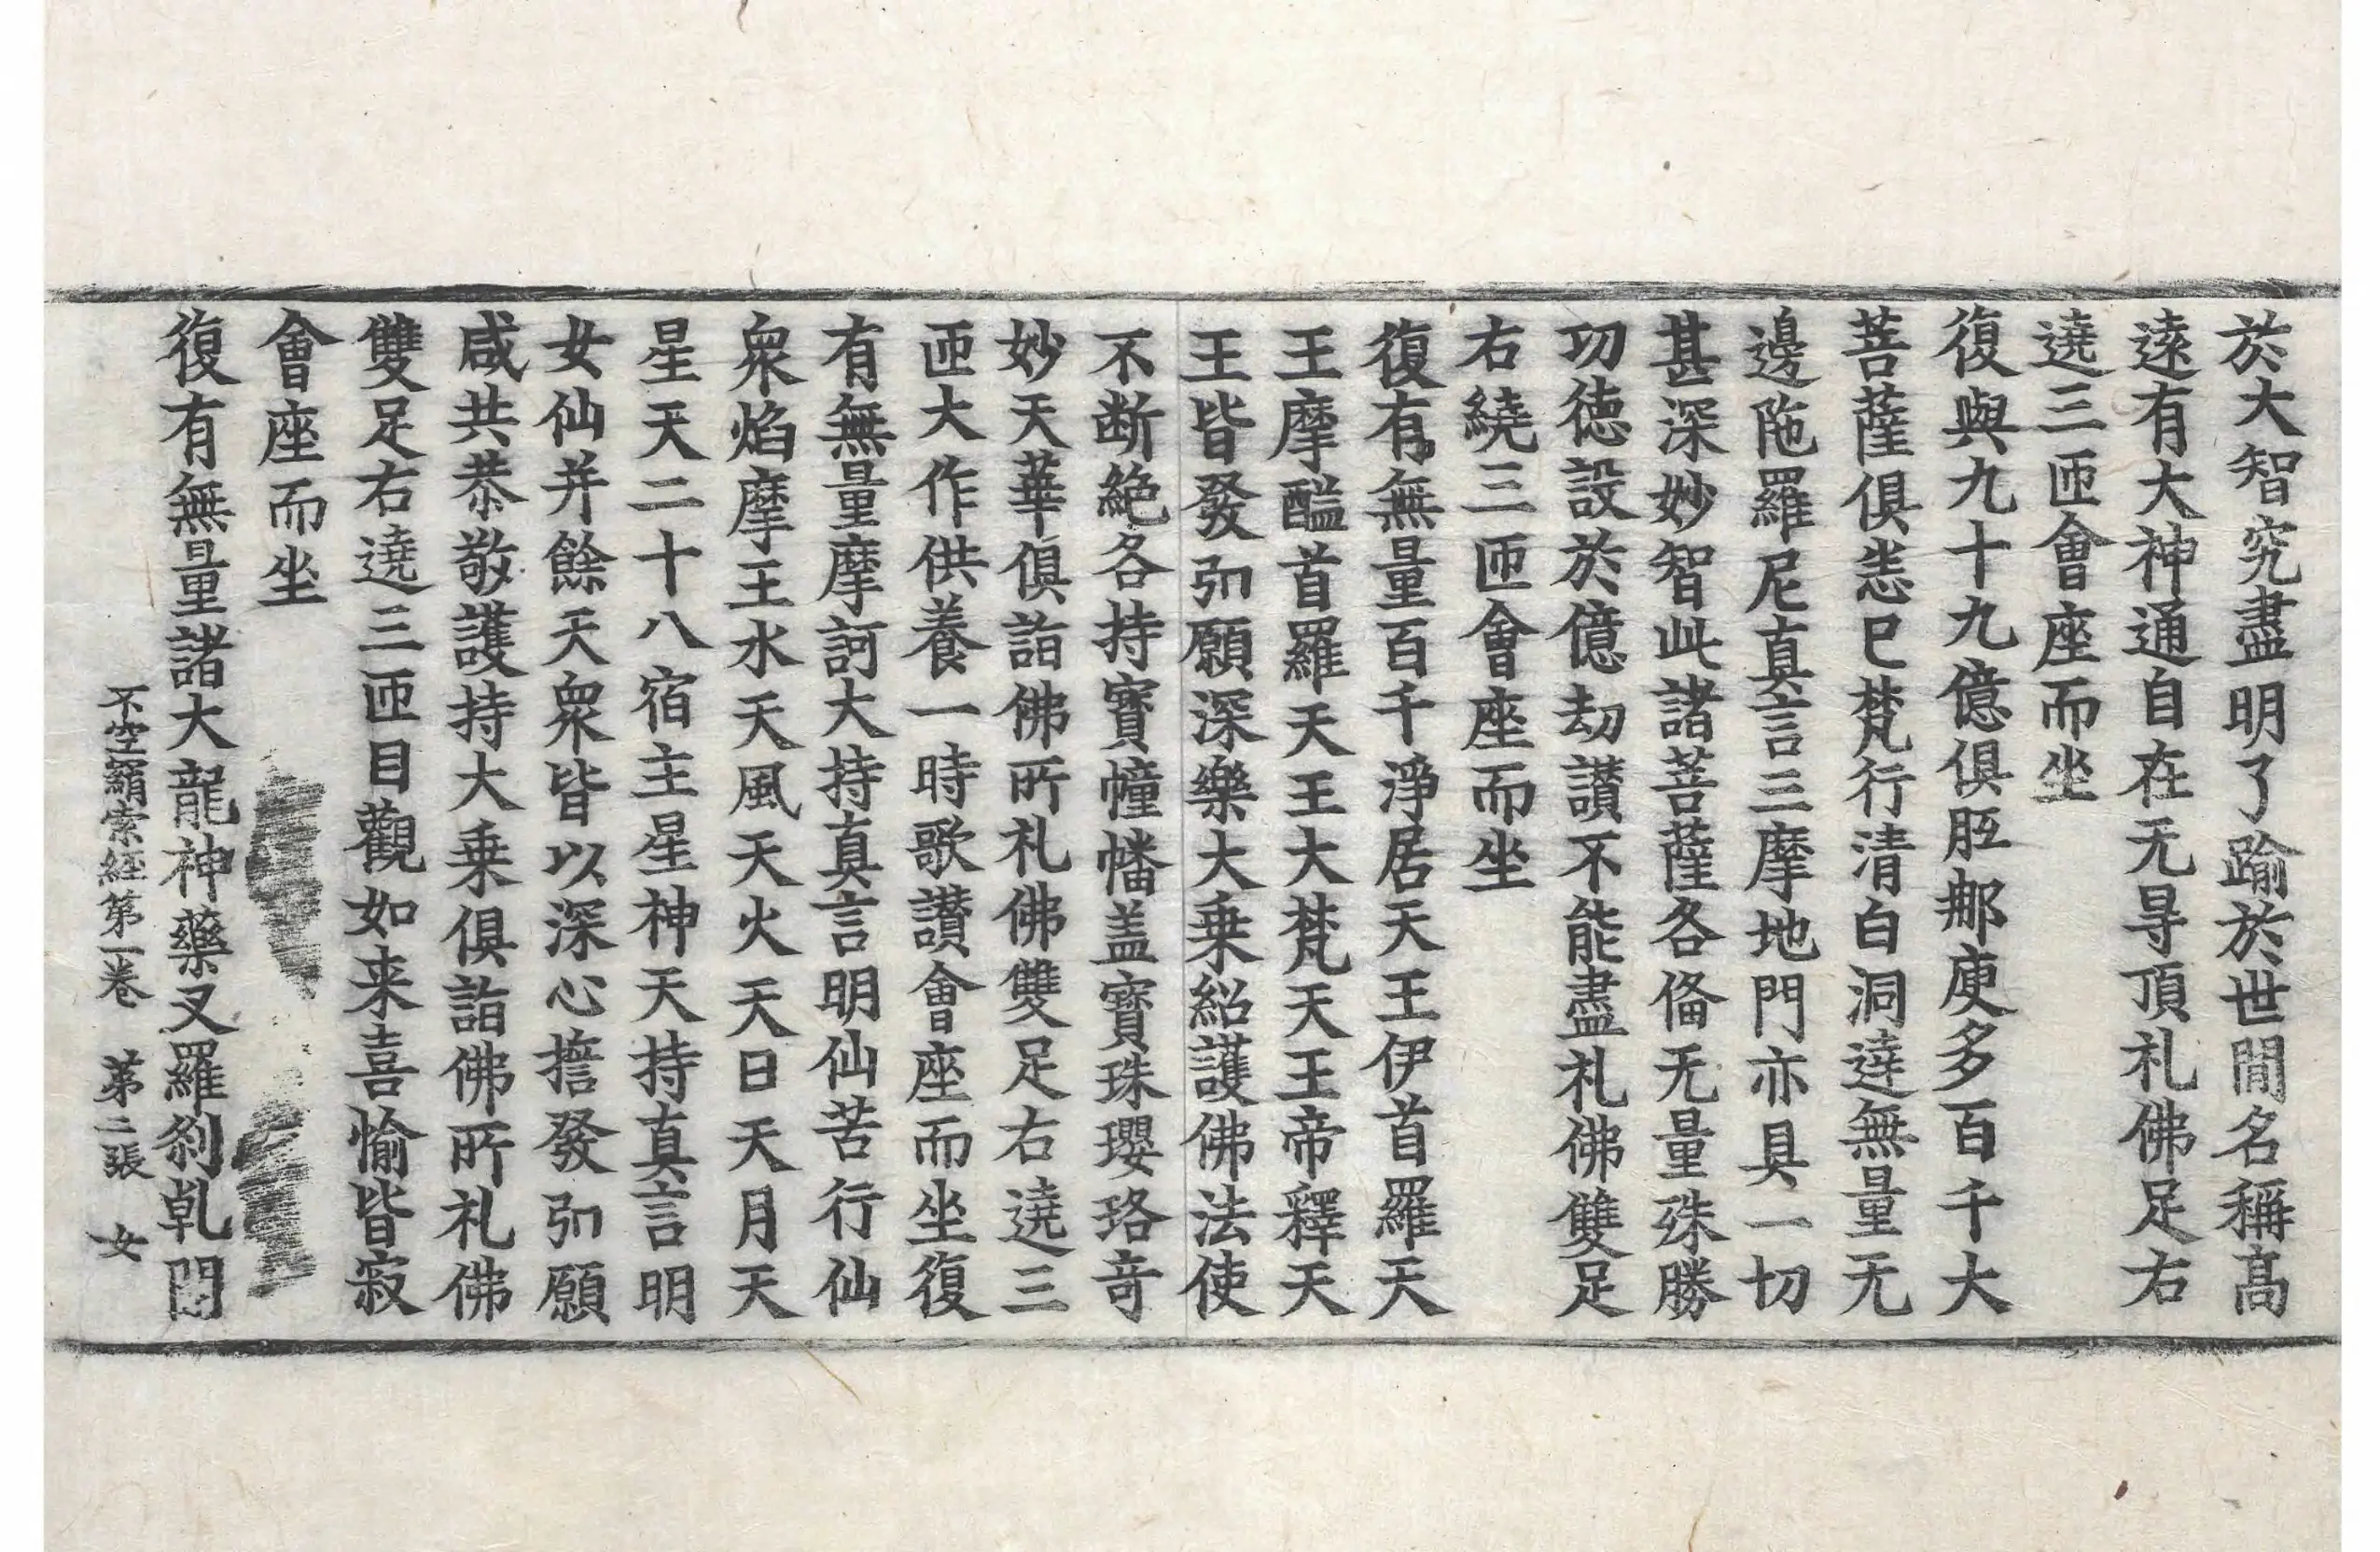 於大智究盡明了踰於世間名稱髙
逺有大神通自在无㝵頂礼佛足右
遶三匝會座而坐
復與九十九億俱胝𨙻庾多百千大
菩薩俱悉已梵行清白洞達無量无
邊陁羅尼真言三摩地門亦具一切
甚深妙智此諸菩薩各俻无量殊勝
㓛德設於億劫讃不能盡礼佛雙足
右繞三匝會座而坐
復有無量百千淨居天王伊首羅天
王摩醯首羅天王大梵天王帝釋天
王皆發弘願深樂大乗紹護佛法使
不断絕各持寳幢幡盖寳珠瓔珞竒
妙天華俱詣佛所礼佛雙足右遶三
匝大作供養一時歌讃會座而坐復
有無量摩訶大持真言明仙苦行仙
衆焰摩王水天風天火天日天月天
星天二十八宿主星神天持真言明
女仙并餘天衆皆以深心擔發弘願
咸共恭敬護持大乗俱詣佛所礼佛
雙足右遶三匝目觀如来喜愉皆寂
會座而坐
復有無量諸大龍神藥叉羅刹乹闥
不空羂索經第一卷 第二張 女